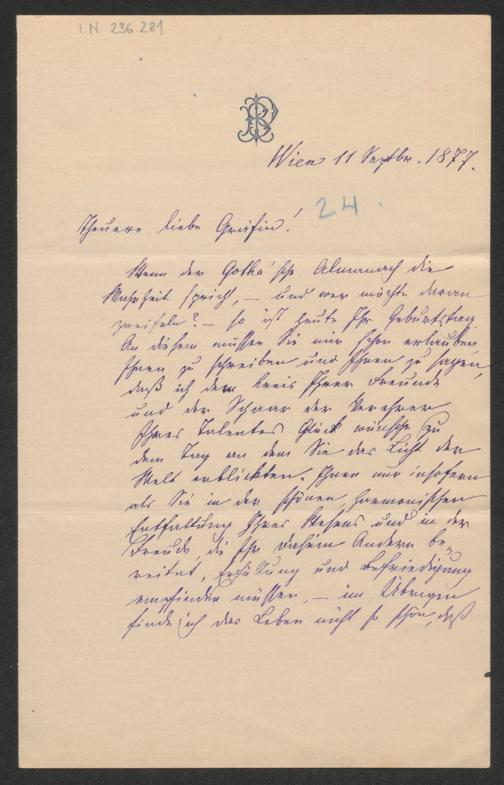 I.N. 236.281
BP
Wien 11 Septbr. 1877.
24.
Theuere liebe Gräfin!
Wenn der Gotha'sche Almanach die
Wahrheit spricht, – und wer möchte daran
zweifeln? – so ist heute Ihr Geburtstag
An diesem müssen Sie mir schon erlauben
Ihnen zu schreiben und Ihnen zu sagen,
daß ich dem Kreis Ihrer Freunde
und der Schaar der Verehrer
Ihres Talentes Glück wünsche zu
dem Tag an dem Sie das Licht der
Welt erblickten. Ihnen nur insofern
als Sie in der schönen, harmonischen
Entfaltung Ihres Wesens und in der
Freude, die Ihr Dasein Andern be-
reitet, Erfüllung und Befriedigung
empfinden müssen, – im Übrigen
finde ich das Leben nicht so schön, daß